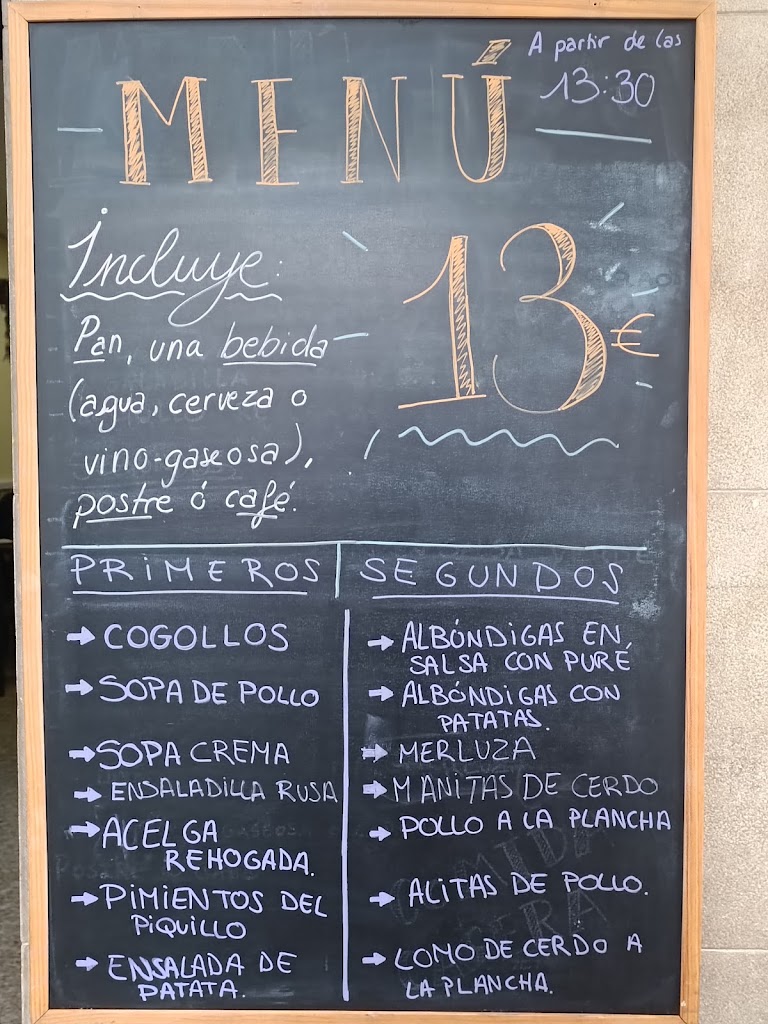 A partir de las
13:30
MENÚ
Incluye:
Pan, una bebida
(agua, cerveza o
vino-gaseosa),
postre ó café.
13€
PRIMEROS
→ COGOLLOS
→ SOPA DE POLLO
→ SOPA CREMA
→ ENSALADILLA RUSA
→ ACELGA
REHOGADA.
→ PIMIENTOS DEL
PIQUILLO
→ ENSALADA DE
PATATA.
SEGUNDOS
→ ALBÓNDIGAS EN
SALSA CON PURÉ
→ ALBÓNDIGAS CON
PATATAS.
→ MERLUZA
→ MANITAS DE CERDO
→ POLLO A LA PLANCHA
→ ALITAS DE POLLO.
→ LOMO DE CERDO A
LA PLANCHA.